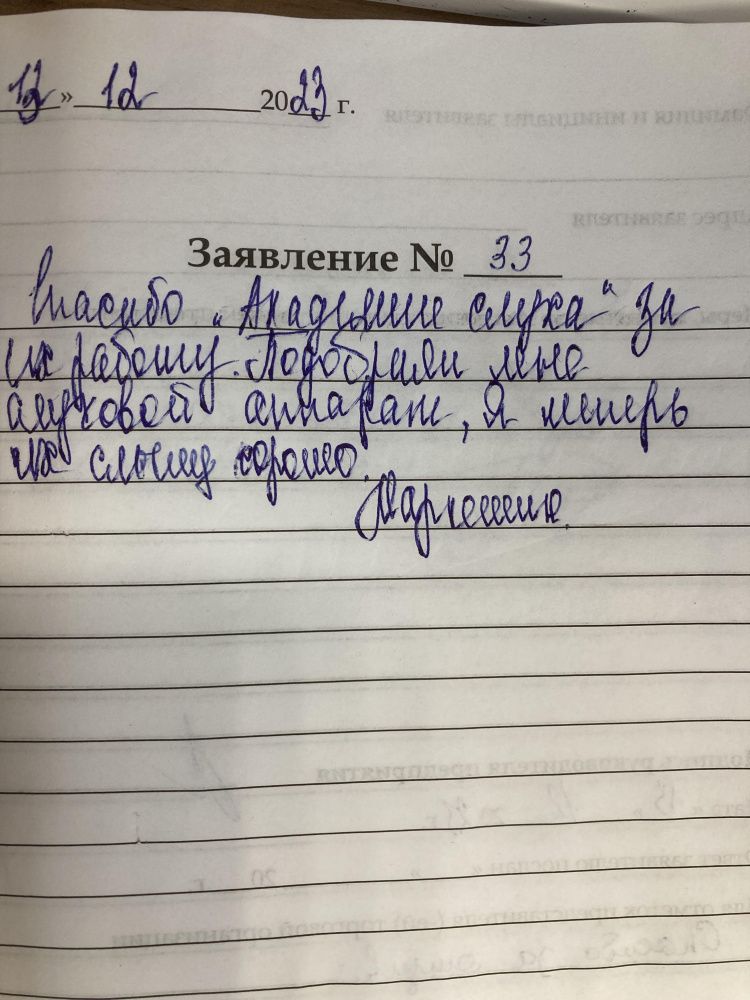 12 » 12 2023 г.
Заявление № 33
Спасибо „Академие слуха“ за
их работу. Подобрали мне
слуховой аппарат, я теперь
их слышу хорошо.